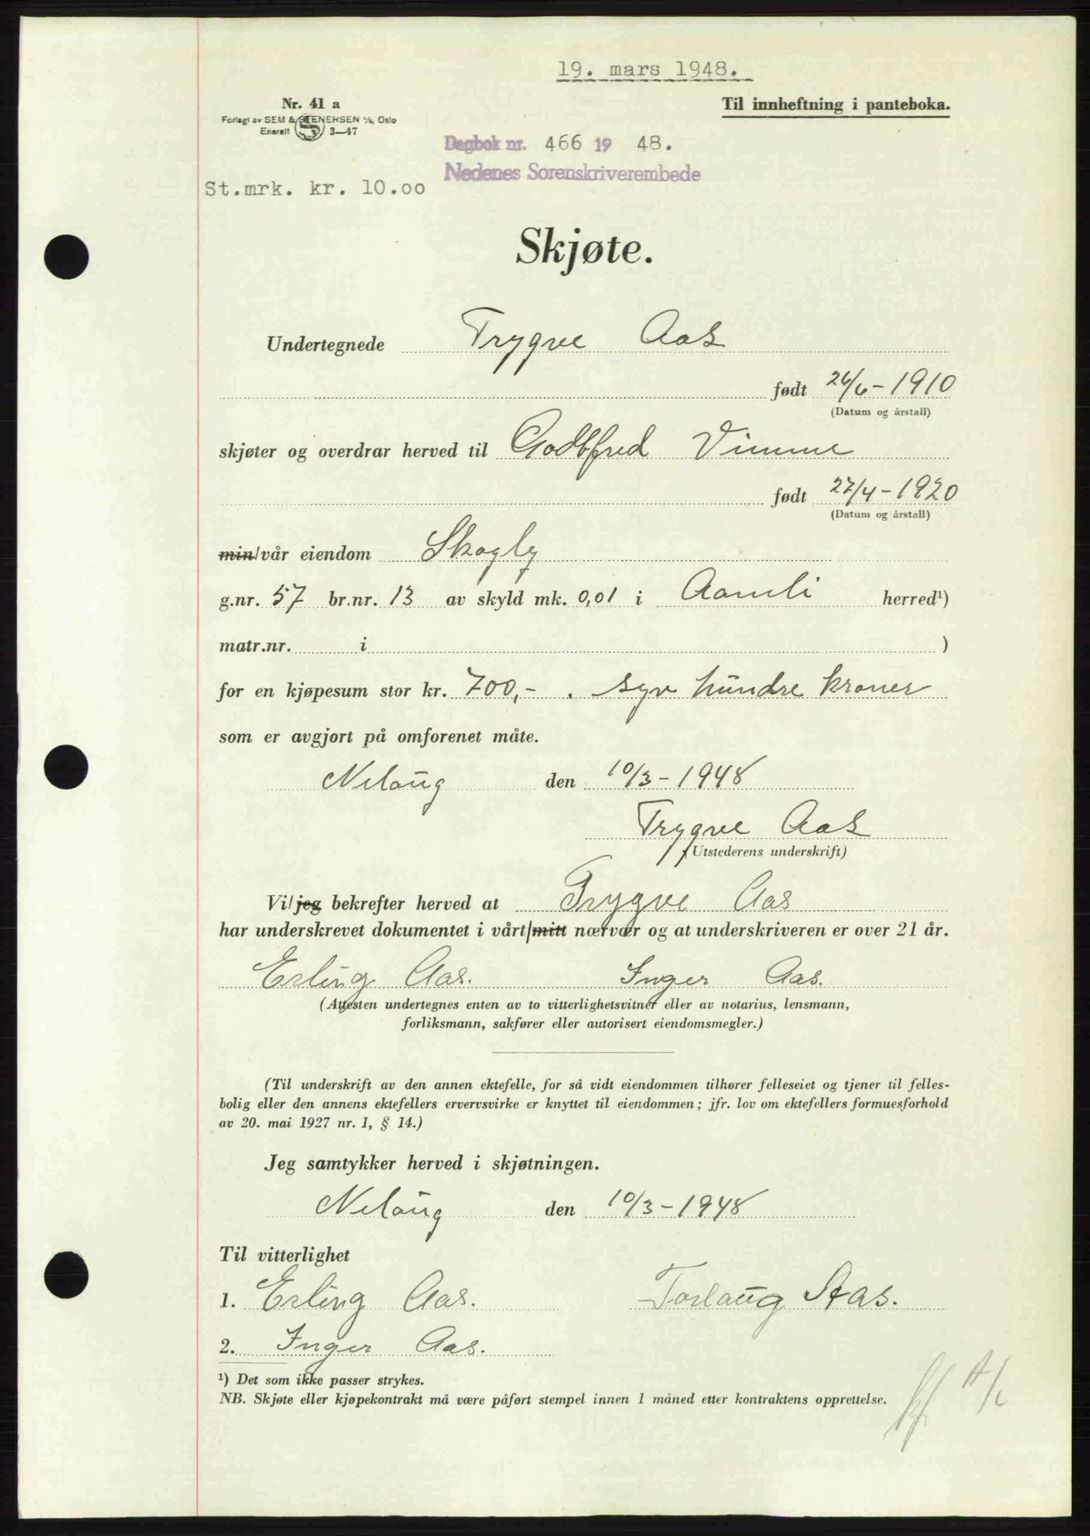 19. mars 1948.
Nr. 41 a
Til innheftning i panteboka.
Forlagt av SEM & STENERSEN A/S, Oslo
Enerett S 3—47
Dagbok nr. 466 19 48.
Nedenes Sorenskriverembede
St.mrk. kr. 10.00
Skjøte.
Undertegnede Trygve Aas
født 26/6-1910
(Datum og årstall)
skjøter og overdrar herved til Godtfred Vimme
født 27/4-1920
(Datum og årstall)
min/vår eiendom Skogly
g.nr. 57 br.nr. 13 av skyld mk. 0,01 i Aamli herred¹)
matr.nr. i )
for en kjøpesum stor kr. 700,- . syv hundre kroner
som er avgjort på omforenet måte.
Nelaug den 10/3-1948
Trygve Aas
(Utstederens underskrift)
Vi/jeg bekrefter herved at Trygve Aas
har underskrevet dokumentet i vårt/mitt nærvær og at underskriveren er over 21 år.
Erling Aas. Inger Aas.
(Attesten undertegnes enten av to vitterlighetsvitner eller av notarius, lensmann,
forliksmann, sakfører eller autorisert eiendomsmegler.)
(Til underskrift av den annen ektefelle, for så vidt eiendommen tilhører felleseiet og tjener til felles-
bolig eller den annens ektefellers ervervsvirke er knyttet til eiendommen; jfr. lov om ektefellers formuesforhold
av 20. mai 1927 nr. 1, § 14.)
Jeg samtykker herved i skjøtningen.
Nelaug den 10/3-1948
Til vitterlighet
1. Erling Aas. Torlaug Aas.
2. Inger Aas.
¹) Det som ikke passer strykes.
NB. Skjøte eller kjøpekontrakt må være påført stempel innen 1 måned etter kontraktens opprettelse.